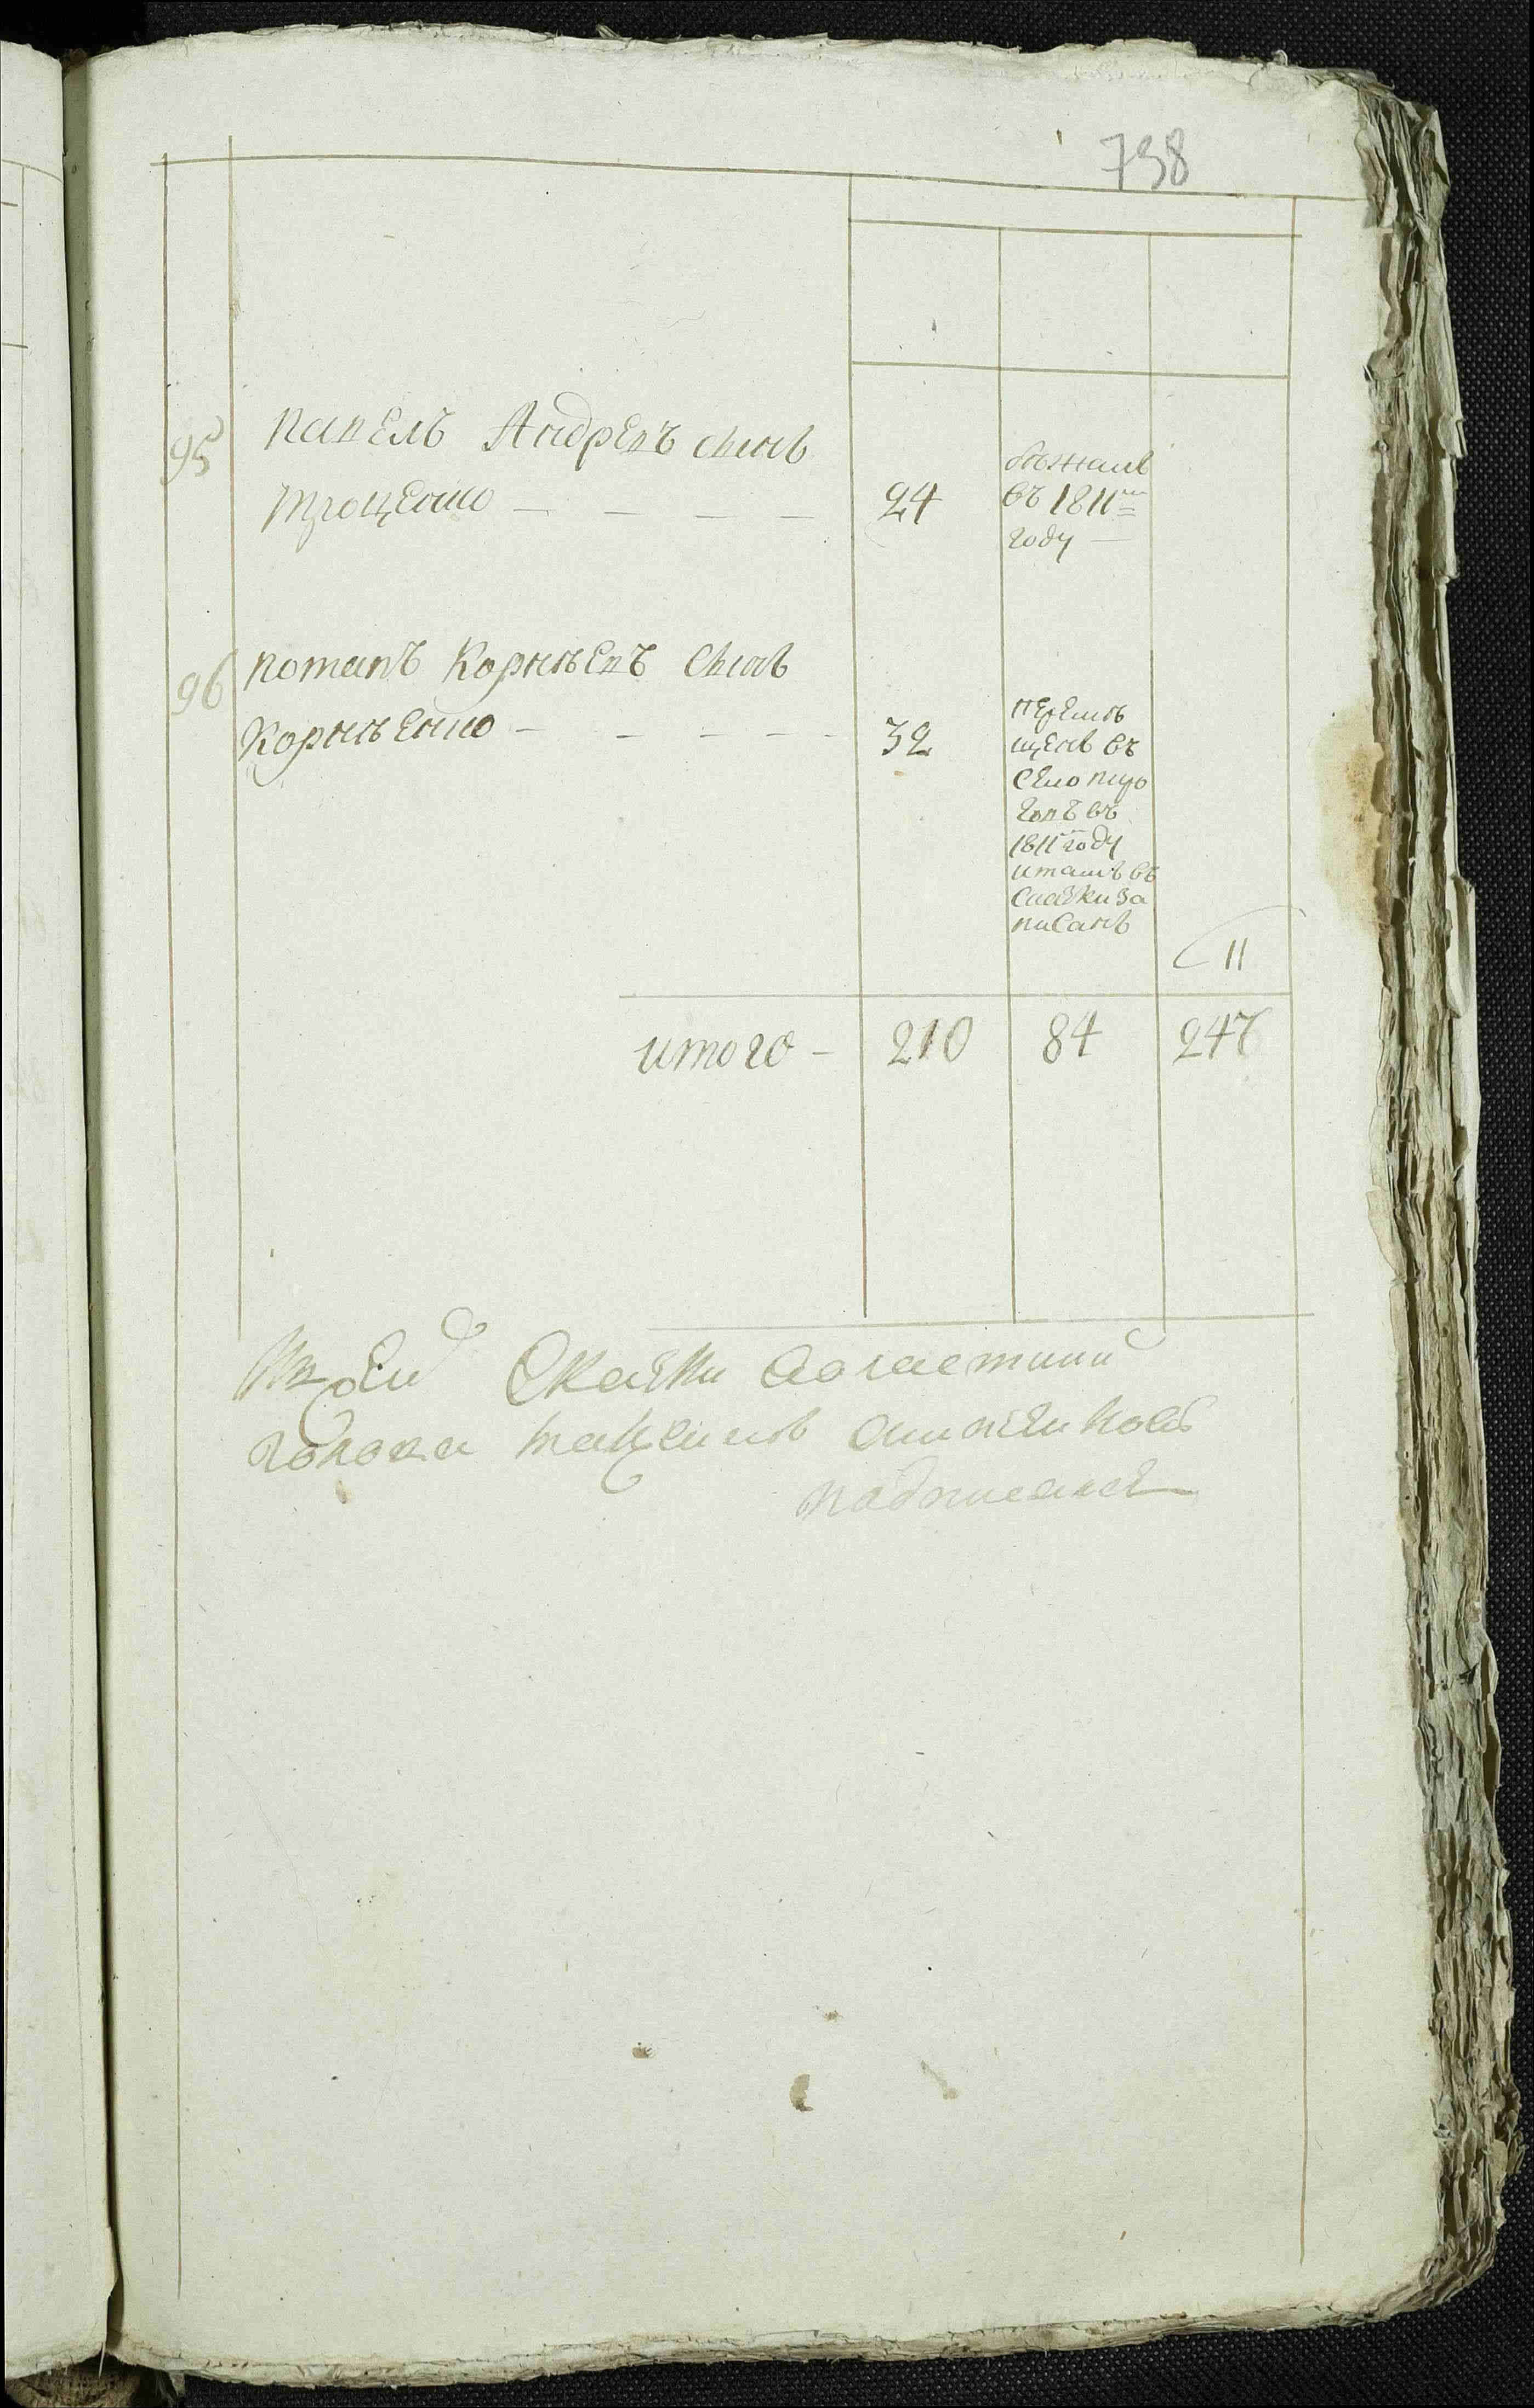 738
95 Павелъ Андреевъ сынъ
Троценко 24
бѣжалъ
въ 1811м
году
96 Потапъ Корнѣевъ сынъ
Корнѣенко 32
перемѣ
щенъ въ
село Пиро
говъ въ
1811 году
и тамъ въ
сказки за
писанъ
11
итого 210 84 247
К сей Скаски
голова подписался